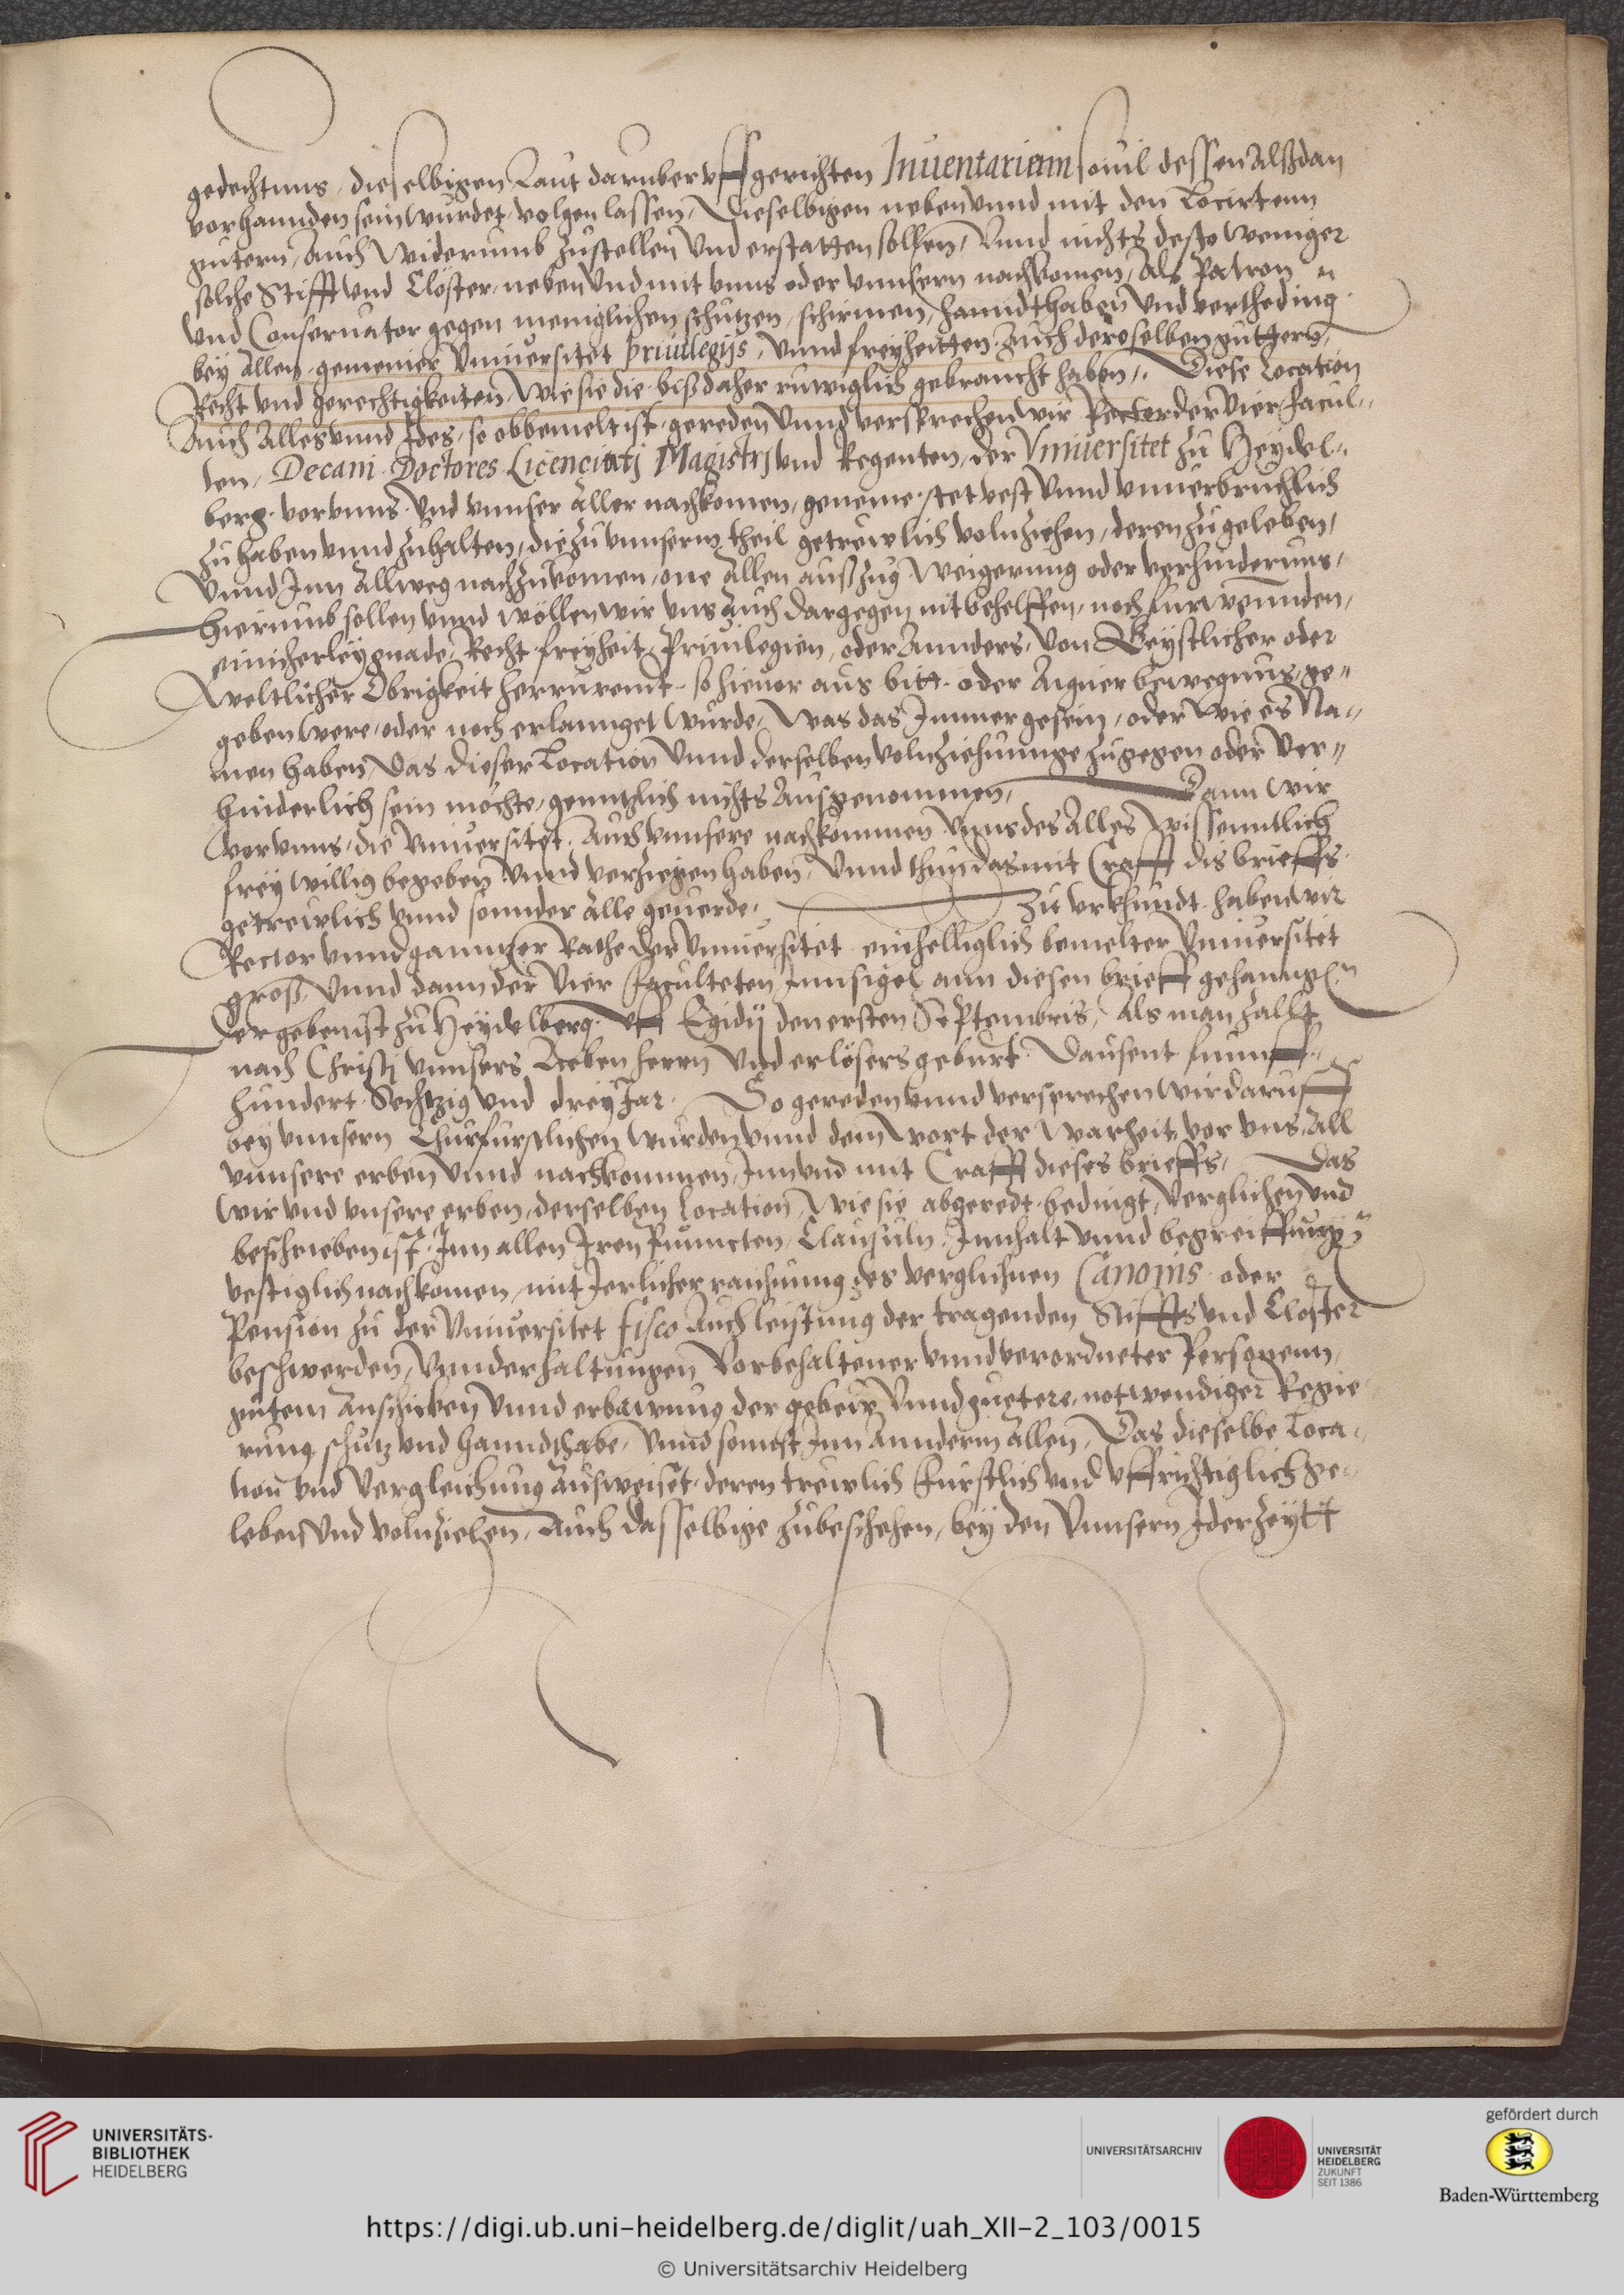 gedechtnus, dieselbigen Laut daruber uffgerichten Inuentarium souil dessen Alßdan
vorhannden sein wurdet, volgen lassen, Dieselbigen neben unnd mit den Locirtenn
gutern, Auch widerumb zustellen und erstatten sollen, Unnd nichts desto weniger
solche Stifft und Clöster, neben und mit unns oder unnsern nachkomen, Als Patron
und Conseruator gegen meniglichen schutzen, schirmen, hanndthaben und vertheding
bey Allen, gemeiner Uniuersitet priuilegijs, unnd freyheitten Auch deroselben guttern,
Recht und gerechtigkeiten, Wie sie die bißdaher ruwiglich gebraucht haben, Diese Location
Auch Alles unnd Ides, so obbemelt ist, gereden unnd versprechen wir Rector der vier Facul-
ten, Decani Doctores Licenciatj Magistrj und Regenten, der Uniuersitet zu Heydel-
berg, vor unns, und unnser Aller nachkomen, geneme, stet vest unnd unuerbruchlich
zu haben unnd zuhalten, die zu unnserm theil getrewlich volnziehen, deren zugeleben,
Unnd Inn Allweg nachzukomen, one Allen außzug Weigerung oder verhinderung,
Hierumb sollen unnd wöllen wir uns Auch dargegen nit behelffen, noch furwennden,
einicherley gnade, Recht, freyheit, Priuilegien, oder Annders, von Geystlicher oder
weltlicher Obrigkeit herrurent, so hieuor aus bitt, oder Aigner bewegnus, ge-
geben were, oder noch erlannget wurde, Was das Immer gesein, oder Wie es Na-
men haben, Das dieser Location unnd derselben volnziehunge zugegen oder ver-
hinderlich sein möchte, genntzlich nichts Ausgenommen, Dann wir
vor unns, die Uniuersitet, Auch unnsere nachkommen unns des Alles wissenntlich
frey willig begeben unnd verziegen haben, Unnd thun das mit Crafft dis brieffs
getrewlich unnd sonnder Alle geuerde, Zu urkhundt haben wir
Rector unnd gannzer Rathe der Uniuersitet einhelliglich bemelter Uniuersitet
groß, Unnd dann der vier Faculteten Innsigel ann diesen brieff gehanngen
Der geben ist zu Heydelberg, uff Egidij den ersten Septembris, Als man zallt
nach Christj unnsers Lieben herrn und erlösers geburt, Dausent funff-
hundert Sechzig und drey Jar, So gereden unnd versprechen wir daruff
bey unnsern Churfurstlichen wurden unnd dem wort der Warheit, vor uns, All
unnsere erben unnd nachkommen, Inn und mit Crafft dieses brieffs, Das
Wir und unsere erben, derselben Location, Wie sie abgeredt, bedingt, verglichen und
beschrieben ist, Inn allen Iren Puncten, Clausuln, Innhalt unnd begreiffung
vestiglich nachkomen, mit Jerlicher raichung des verglichnen Canonis oder
Pension zu der Uniuersitet fisco Auch leistung der tragenden Stiffts und Closter
beschwerden, Unnderhaltungen Vorbehaltener unnd verordneter Personenn,
gutem Anschicken unnd erbawung der gebew unnd guetere, notwendiger Regie
rung, schutz und hanndthabe, Unnd sonnst Inn Annderm Allen, Das dieselbe Loca-
tion und Vergleichung ausweiset, deren trewlich Furstlich und uffrichtiglich ge-
leben und volnziehen, Auch dasselbige zubeschehen, bey den unnsern Iderzeytt
UNIVERSITÄTS-
BIBLIOTHEK
HEIDELBERG
UNIVERSITÄTSARCHIV
UNIVERSITÄT
HEIDELBERG
ZUKUNFT
SEIT 1386
gefördert durch
Baden-Württemberg
https://digi.ub.uni-heidelberg.de/diglit/uah_XII-2_103/0015
© Universitätsarchiv Heidelberg